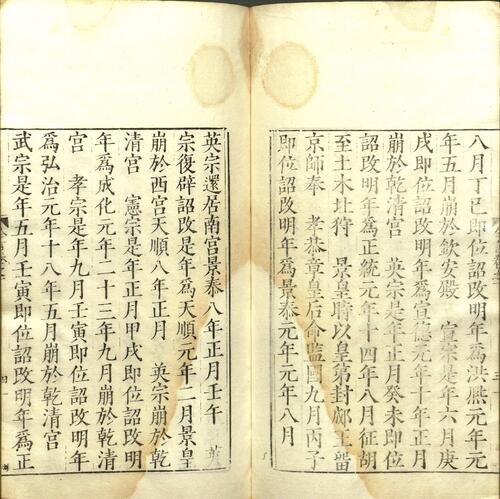 八月丁巳即位詔改明年爲洪熈元年元
年五月崩於欽安殿　宣宗是年六月庚
戌即位詔改明年爲宣德元年十年正月
崩於乾清宮　英宗是年正月癸未即位
詔改明年爲正統元年十四年八月征胡
至土木北狩　景皇時以皇第封郕王留
京師奉　孝恭章皇后命監國九月丙子
即位詔改明年爲景泰元年元年八月
英宗還居南宮景泰八年正月壬午　英
宗復辟詔改是年爲天順元年二月景皇
崩於西宮天順八年正月　英宗崩於乾
清宮　憲宗是年正月甲戌即位詔改明
年爲成化元年二十三年九月崩於乾清
宮　孝宗是年九月壬寅即位詔改明年
爲弘治元年十八年五月崩於乾清宮
武宗是年五月壬寅即位詔改明年爲正
四